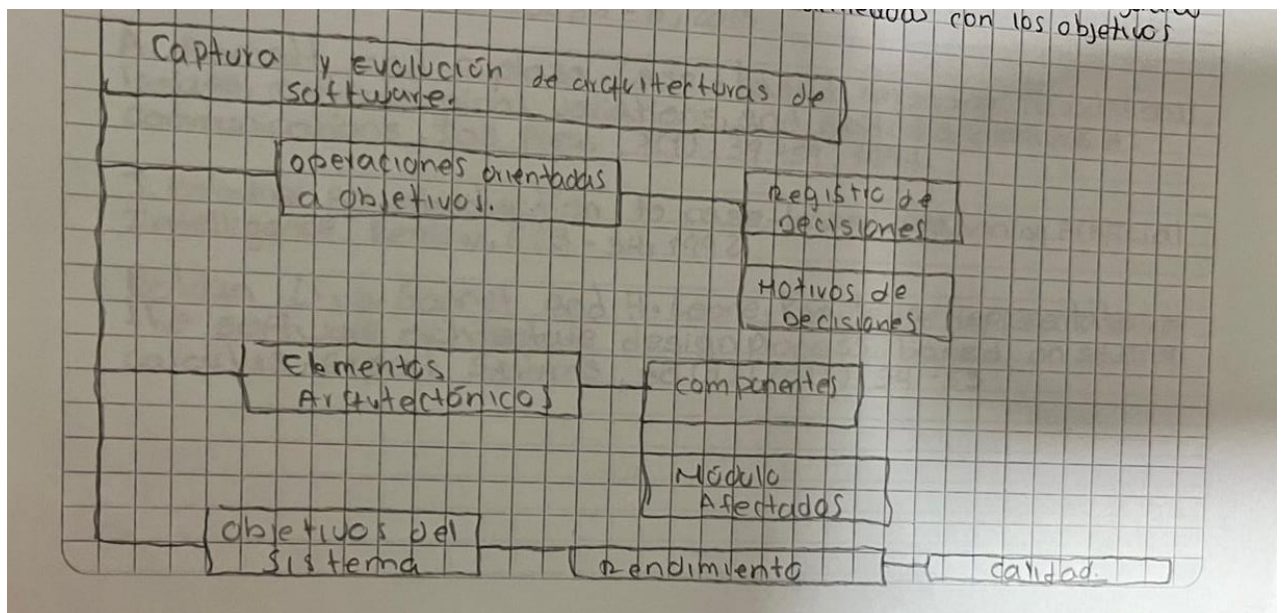 con los objetivos
Captura y Evolución de arquitecturas de
software.
operaciones orientadas
a objetivos.
Registro de
Decisiones
Motivos de
Decisiones
Elementos
Arquitectónicos
componentes
Módulo
Afectados
objetivos del
Sistema
Rendimiento
calidad.